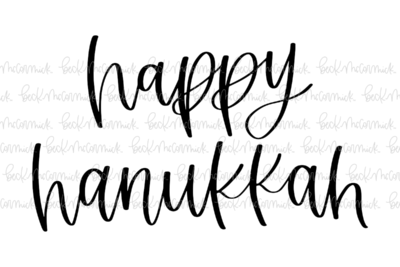 happy
hanukkah